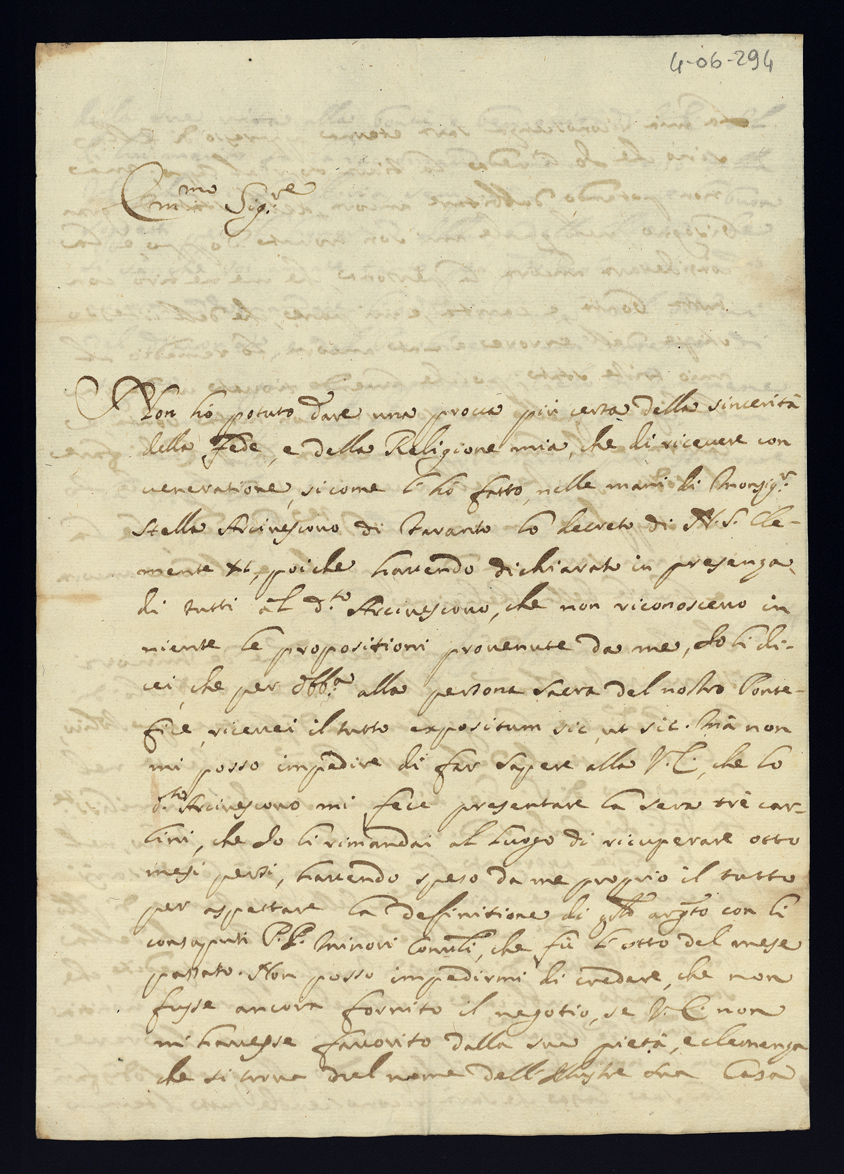 4-06-294
Em.mo Sig.re
Non hó potuto dare una prova piú certa della sincerità
della Fede, e della Religione mia, che di ricevere con
veneratione, sicome l'hó fatto, nelle mani di Monsig.r
Stella Arcivescovo di Taranto lo decreto di N. S. Cle-
mente XI, poiche havendo dichiarato in presenza
di tutti al d.to Arcivescovo, che non riconoscevo in
niente le propositioni provenute da me, Io li di-
cei, che per obb.a alla persona Sacra del nostro Ponte-
fice, ricevei il tutto expositum sic, ut sit. Mà non
mi posso impedire di far sapere alla V. E., che lo
d.to Arcivescovo mi fece presentare la sera trè car-
lini, che Io li rimandai al luogo di ricuperare otto
mesi persi, havendo speso da me proprio il tutto
per aspettare la definitione di q.sto arg.to con li
consaputi P. P. Minori Conv.li, che fù l'otto del mese
passato. Non posso impedirmi di credere, che non
fusse ancora fornito il negotio, se V. E. non
mi havesse favorito dalla sua pietà, e clemenza
che si trova nel nome dell'Illustre Sua Casa